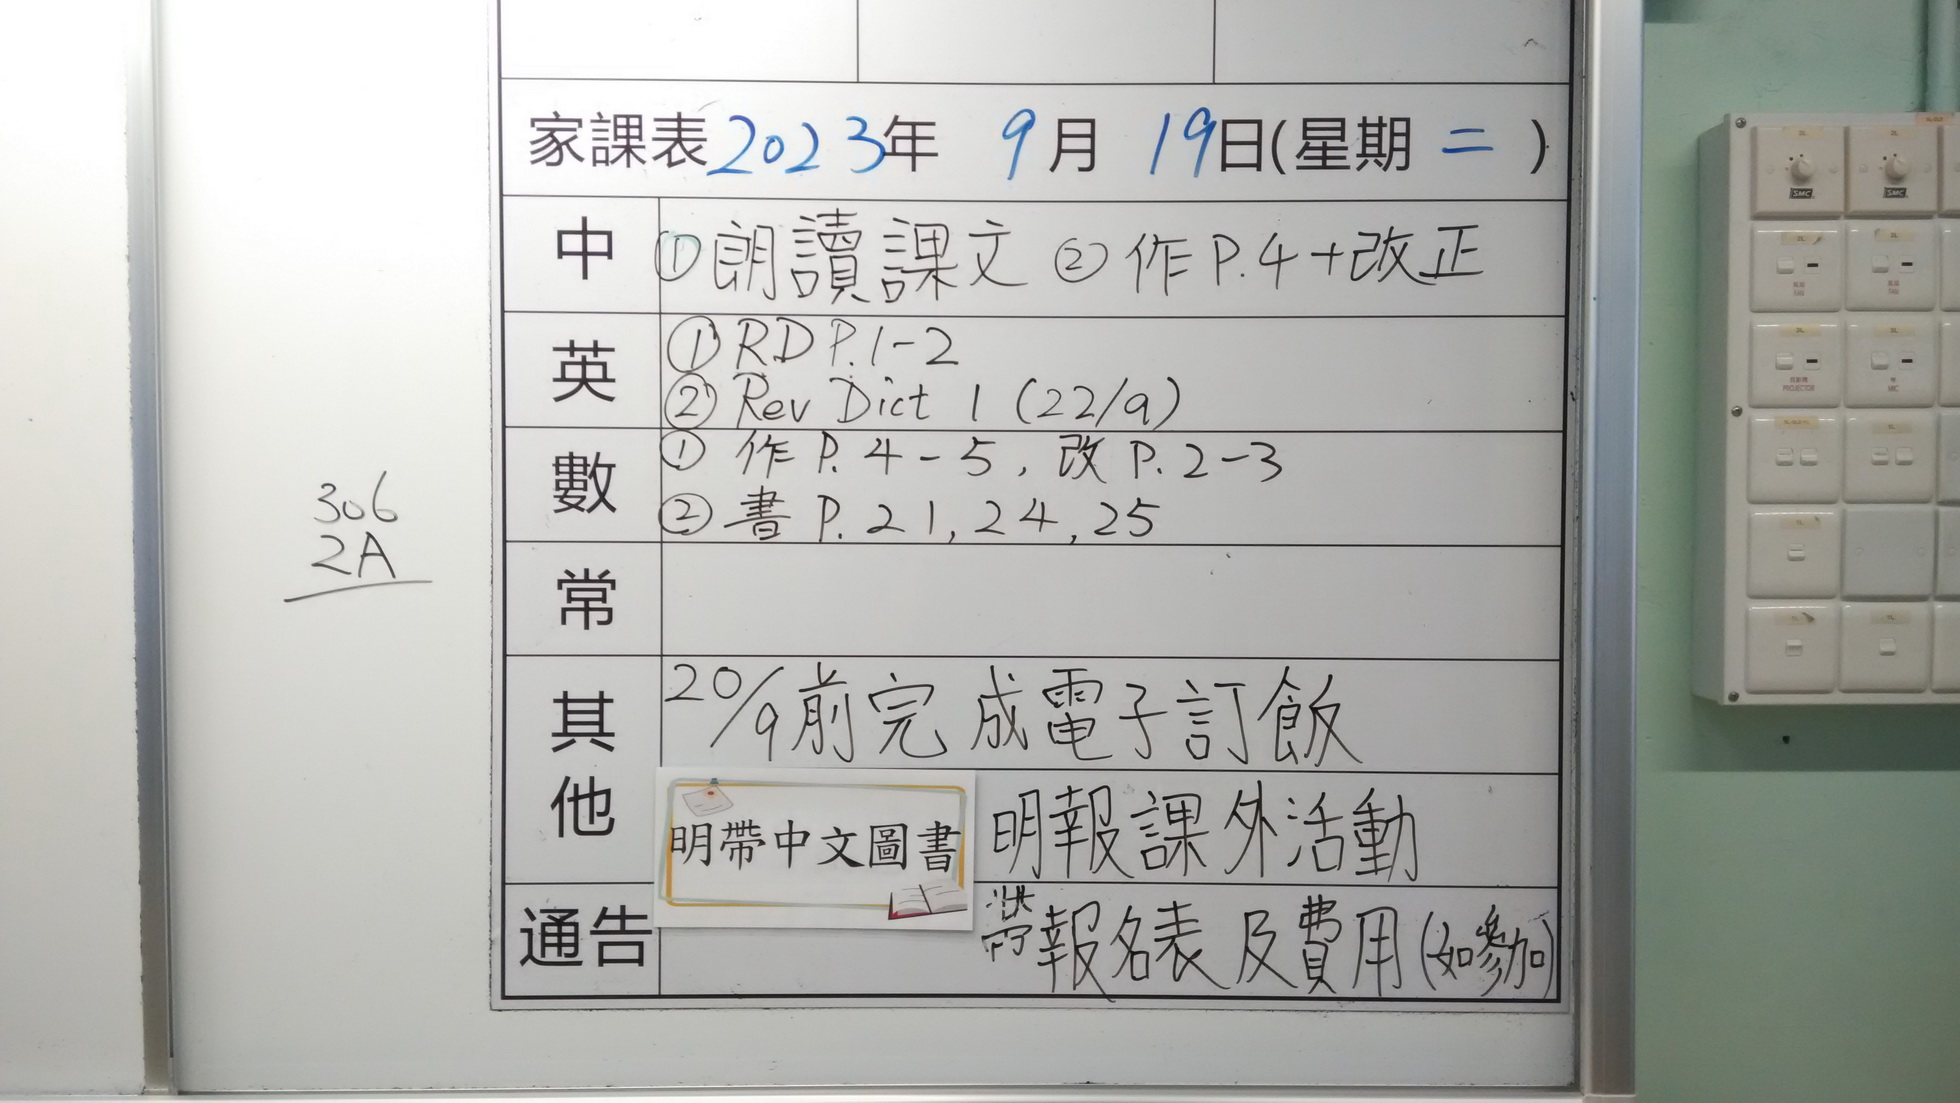 家課表2023年 9月 19日(星期 二 )
中 ①朗讀課文 ②作P.4+改正
英 ①RD P.1-2
②Rev Dict 1 (22/9)
數 ①作P.4-5,改P.2-3
②書P.21,24,25
常
306
2A
其他 20/9前完成電子訂飯
明帶中文圖書 明報課外活動
通告 帶報名表及費用(如參加)
SMC SMC
PROJECTOR
MIC